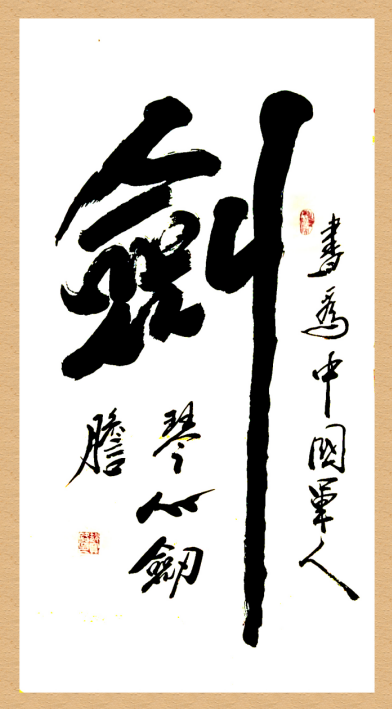 書為中國軍人
劍
琴心劍
膽